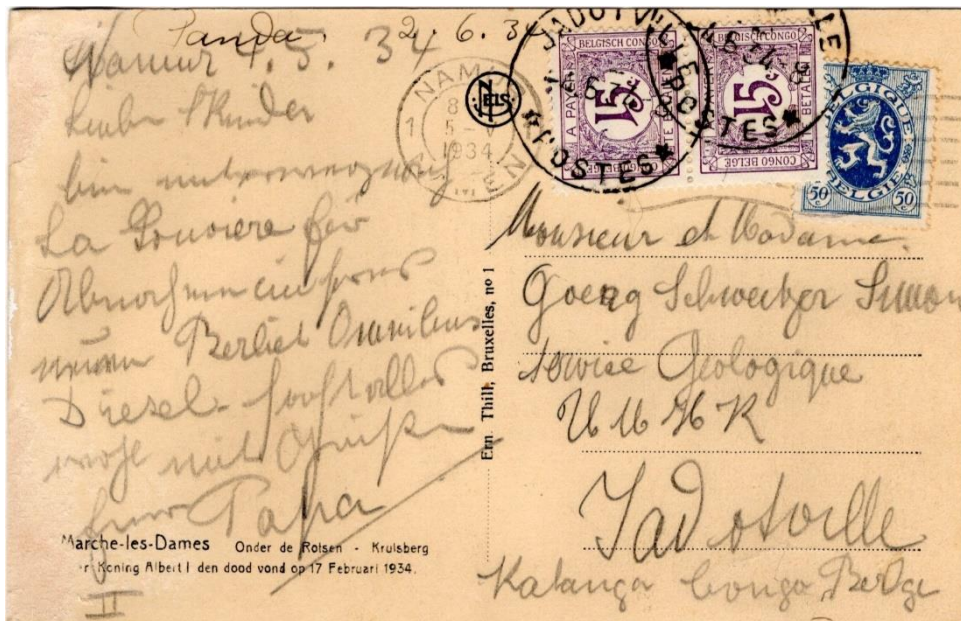 Panda. 2.6.34
Namur 4.5.34
Liebe Kinder
bin unterwegs nach
La Louviere für
Abnahme eines
neuen Berliet Omnibus
Diesel - sonst alles
wohl mit Grüßen
Papa
II
Marche-les-Dames Onder de Rotsen - Kruisberg
er Koning Albert I den dood vond op 17 Februari 1934.
Ern. Thill, Bruxelles, no 1
NELS
NAMUR
8
5-V
1934
JADOTVILLE
POSTES
BELGISCH CONGO
A PAYER
15c
TE BETALEN
CONGO BELGE
JADOTVILLE
POSTES
BELGISCH CONGO
15c
TE BETALEN
CONGO BELGE
BELGIQUE
BELGIË
50c 50c
Monsieur et Madame
Georg Schweitzer Simon
Service Geologique
U M H K
Jadotville
Katanga Congo Belge